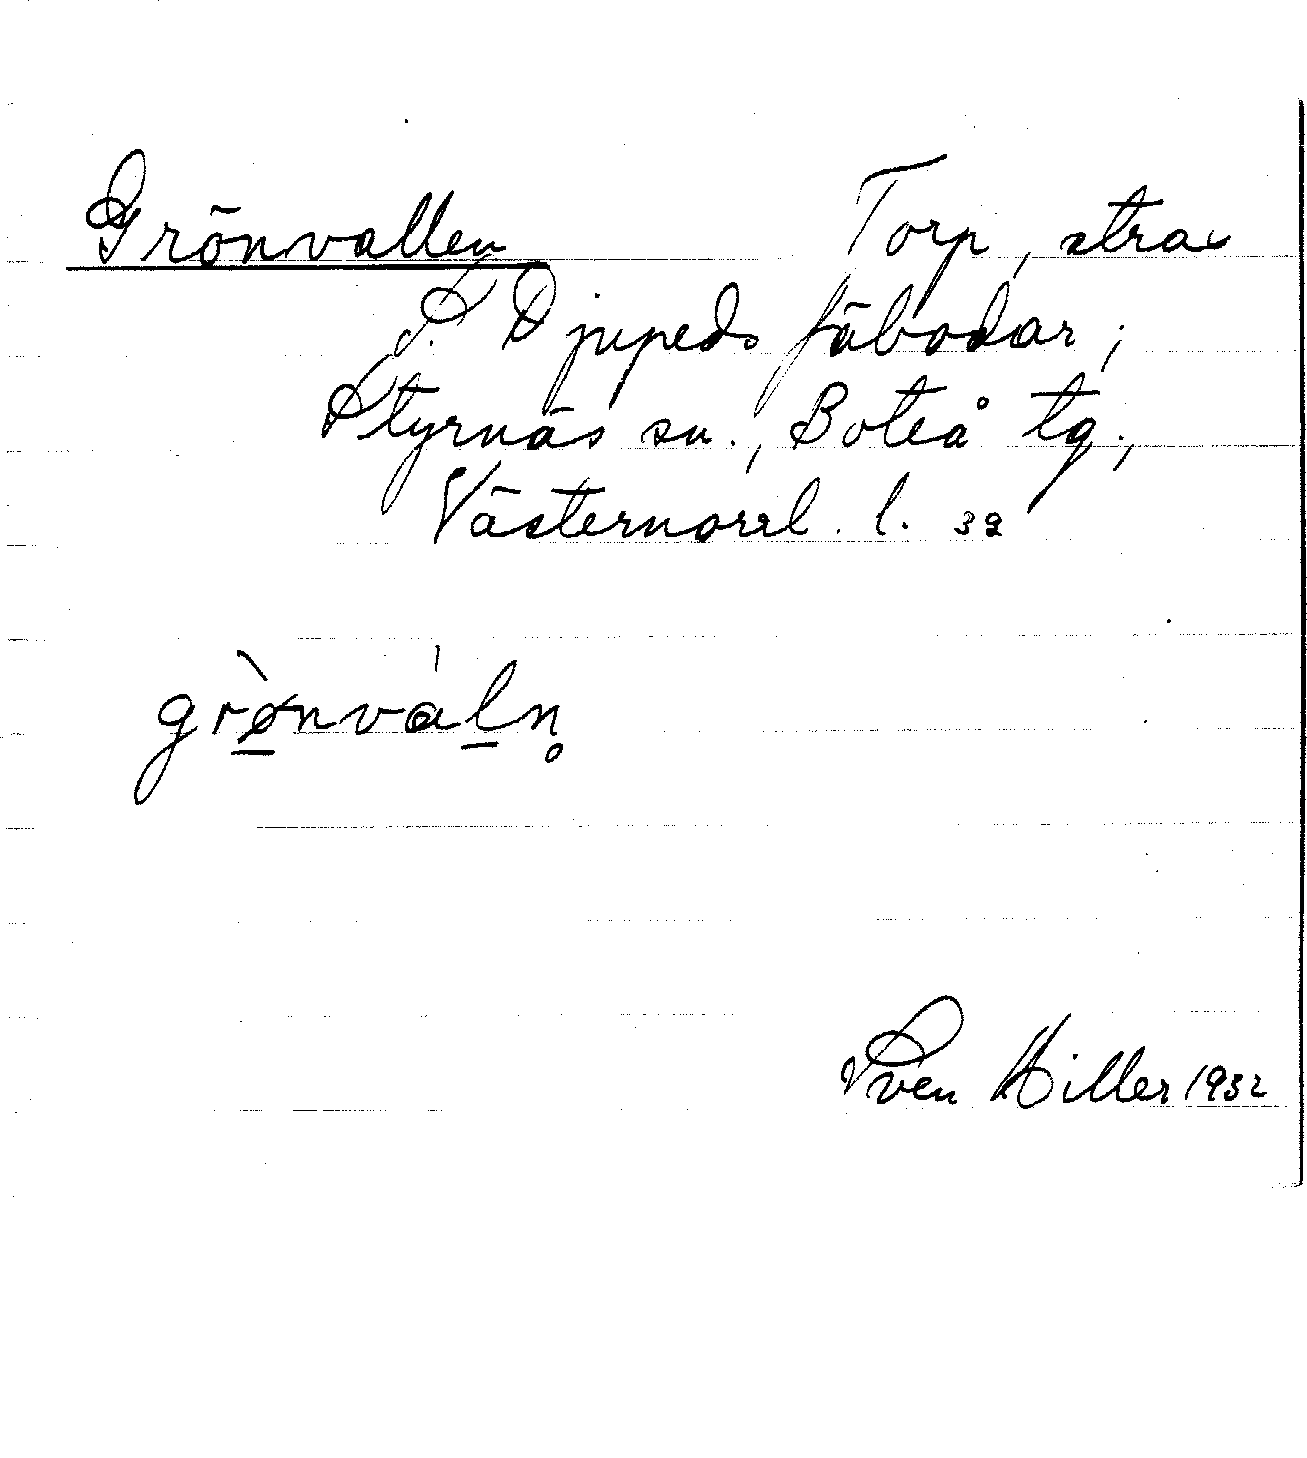 Grönvallen Torp, strax
S. Djupeds fäbodar,
Styrnäs sn., Boteå tg.,
Västernorrl. l. 32
grø̱̀nvàḻn̥
Sven Hiller 1932